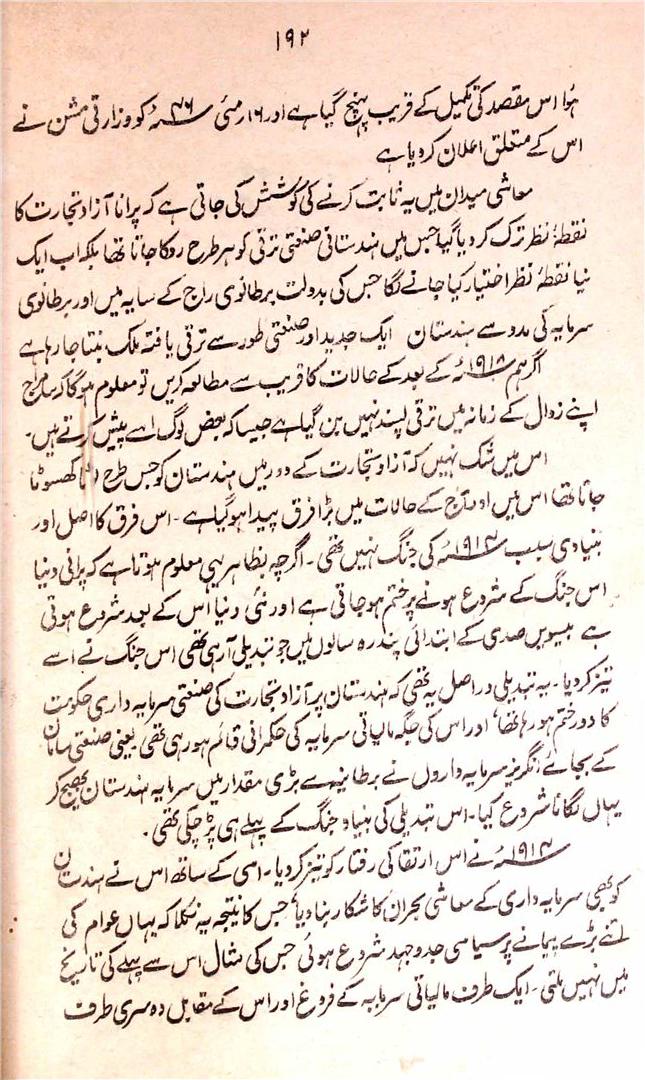 ۱۹۲
ہُوا اس مقصد کی تکمیل کے قریب پہنچ گیا ہے اور ۱۶ مئی ۴۶ء کو وزارتی مشن نے
اس کے متعلق اعلان کر دیا ہے
معاشی میدان میں یہ ثابت کرنے کی کوشش کی جاتی ہے کہ پرانا آزاد تجارت کا
نقطۂ نظر ترک کر دیا گیا جس میں ہندستانی صنعتی ترقی کو ہر طرح روکا جاتا تھا بلکہ اب ایک
نیا نقطۂ نظر اختیار کیا جانے لگا جس کی بدولت برطانوی راج کے سایہ میں اور برطانوی
سرمایہ کی مدد سے ہندستان ایک جدید اور صنعتی طور سے ترقی یافتہ ملک بنتا جا رہا ہے
اگر ہم ۱۹۱۸ء کے بعد کے حالات کا قریب سے مطالعہ کریں تو معلوم ہوگا کہ سامراج
اپنے زوال کے زمانہ میں ترقی پسند نہیں بن گیا ہے جیسا کہ بعض لوگ اسے پیش کرتے ہیں۔
اس میں شک نہیں کہ آزاد تجارت کے دور میں ہندستان کو جس طرح لوٹا کھسوٹا
جاتا تھا اس میں اور آج کے حالات میں بڑا فرق پیدا ہو گیا ہے ۔ اس فرق کا اصل اور
بنیادی سبب ۱۹۱۴ء کی جنگ نہیں تھی ۔ اگرچہ بظاہر یہی معلوم ہوتا ہے کہ پرانی دنیا
اس جنگ کے شروع ہونے پر ختم ہو جاتی ہے اور نئی دنیا اس کے بعد شروع ہوتی
ہے بیسویں صدی کے ابتدائی پندرہ سالوں میں جو تبدیلی آ رہی تھی اس جنگ نے اسے
تیز کر دیا ۔ یہ تبدیلی دراصل یہ تھی کہ ہندستان پر آزاد تجارت کی صنعتی سرمایہ داری حکومت
کا دور ختم ہو رہا تھا، اور اس کی جگہ مالیاتی سرمایہ کی حکمرانی قائم ہو رہی تھی یعنی صنعتی سامان
کے بجائے انگریز سرمایہ داروں نے برطانیہ سے بڑی مقدار میں سرمایہ ہندستان بھیج کر
یہاں لگانا شروع کیا ۔ اس تبدیلی کی بنیاد جنگ کے پہلے ہی پڑ چکی تھی ۔
۱۹۱۴ء نے اس ارتقا کی رفتار کو تیز کر دیا ۔ اسی کے ساتھ اس نے ہندستان
کو بھی سرمایہ داری کے معاشی بحران کا شکار بنا دیا، جس کا نتیجہ یہ نکلا کہ یہاں عوام کی
اتنے بڑے پیمانے پر سیاسی جدوجہد شروع ہوئی جس کی مثال اس سے پہلے کی تاریخ
میں نہیں ملتی ۔ ایک طرف مالیاتی سرمایہ کے فروغ اور اس کے مقابل دوسری طرف